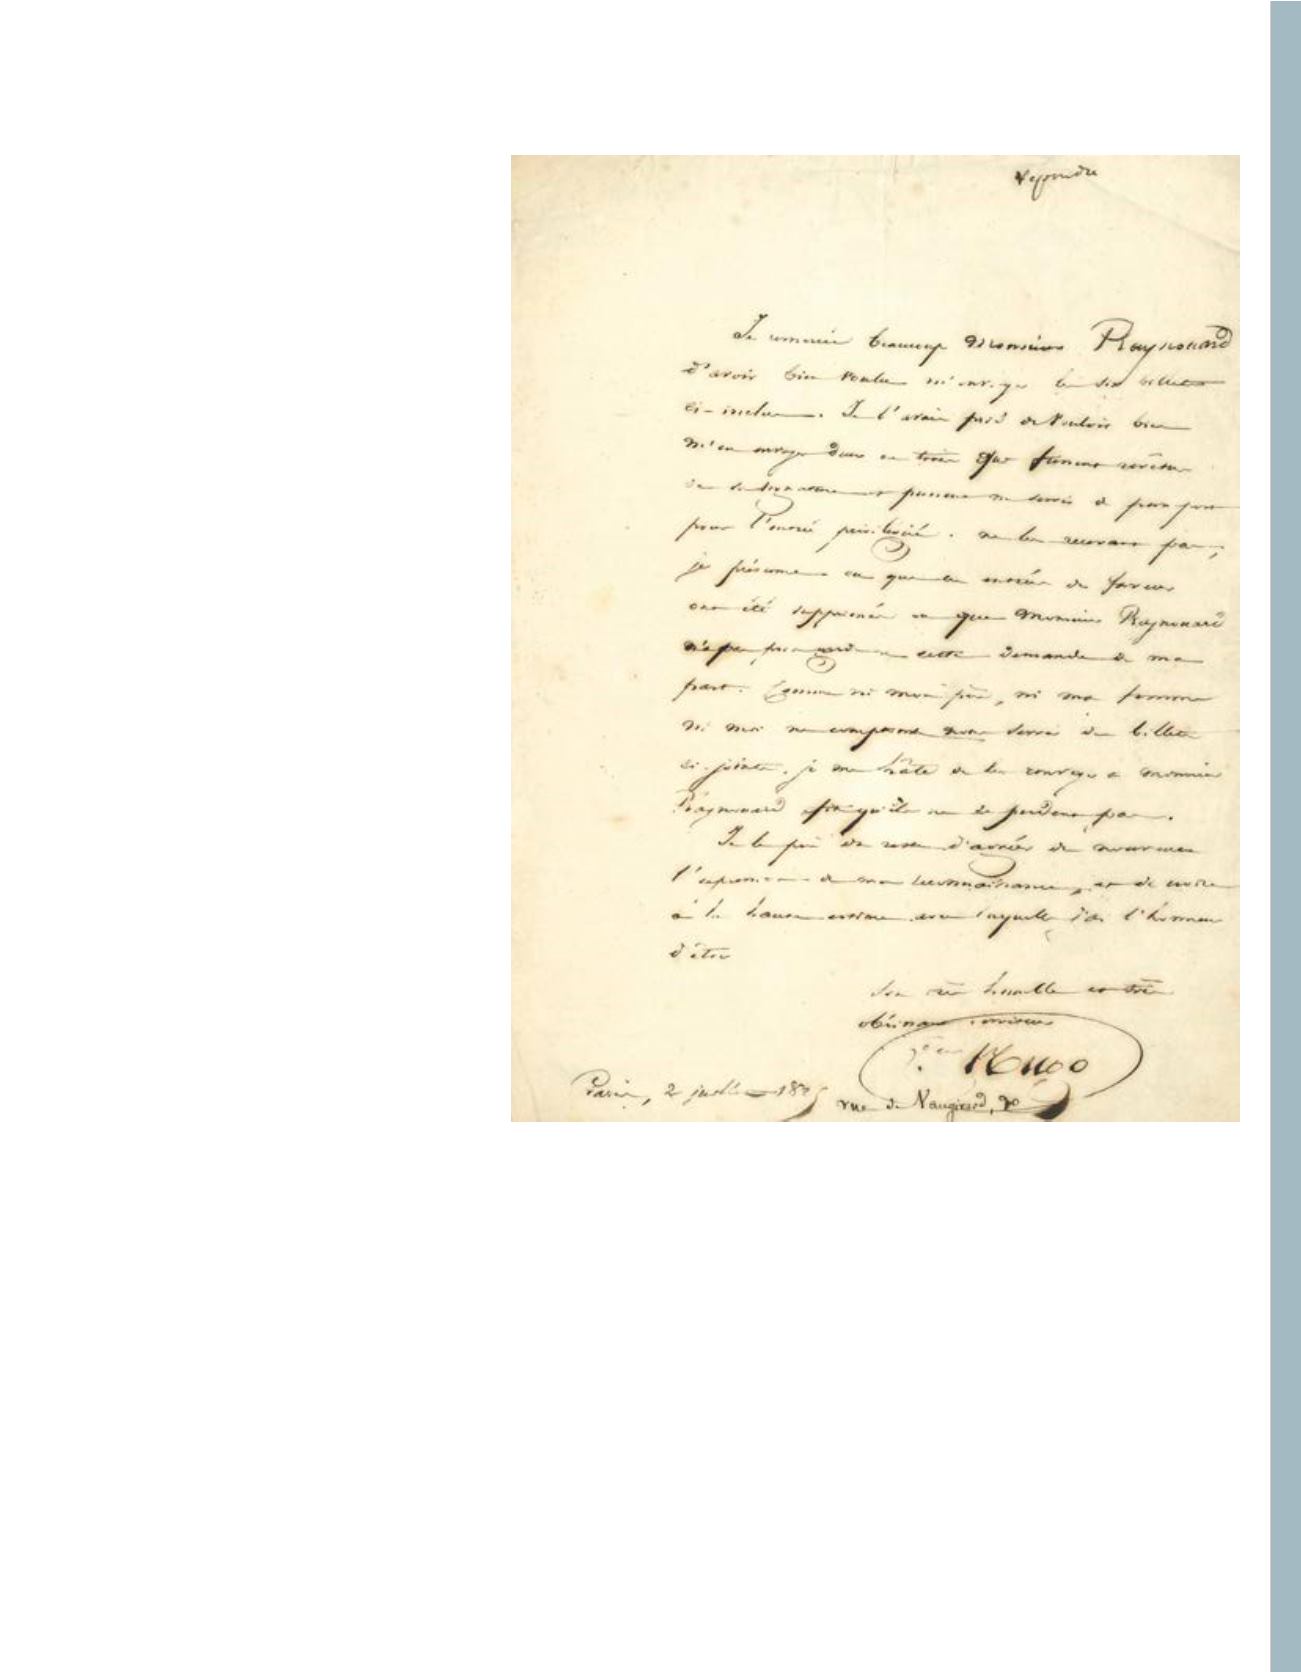 Répondre
Je remercie beaucoup Monsieur Raynouard
d'avoir bien voulu m'envoyer les six billets
ci-inclus. Je l'avais prié de vouloir bien
m'en envoyer deux ou trois qui fussent revêtus
de sa signature et pussent me servir de passeport
pour l'entrée privilégiée. ne les recevant pas,
je présume ou que les entrées de faveur
ont été supprimées ou que Monsieur Raynouard
n'a pas pris garde à cette demande de ma
part. Comme ni mon père, ni ma femme
ni moi ne comptons nous servir des billets
ci-joints, je me hâte de les renvoyer à monsieur
Raynouard afin qu'ils ne se perdent pas.
Je le prie du reste d'agréer de nouveau
l'expression de ma reconnaissance, et de croire
à la haute estime avec laquelle j'ai l'honneur
d'être
Son très humble et très
obéissant serviteur
Hugo
Paris, 2 juillet
rue de Vaugirard, 90